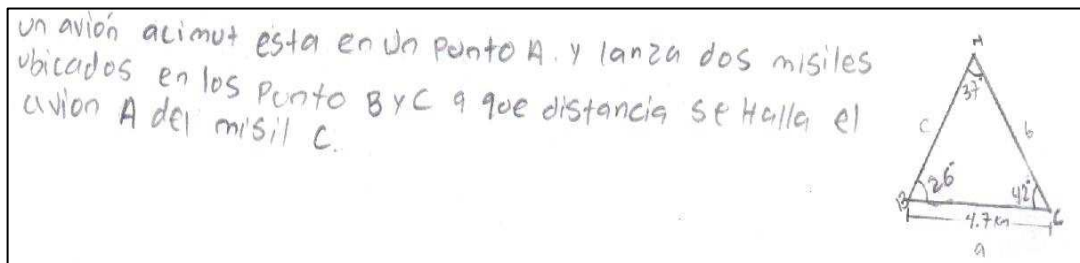 un avión acimut esta en un punto A. y lanza dos misiles
ubicados en los punto B y C a que distancia se Halla el
avion A del misil C.
A
37°
c
b
B
26°
42°
C
4.7 km
a